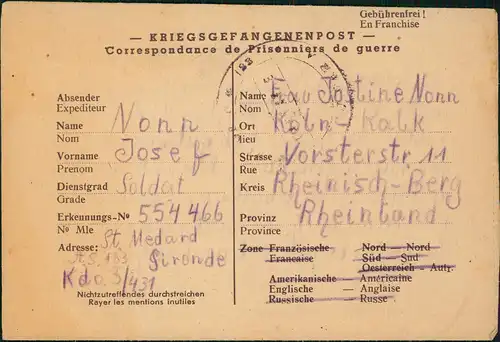 Gebührenfrei!
En Franchise
— KRIEGSGEFANGENENPOST —
Correspondance de Prisonniers de guerre
Absender
Expediteur
Name Nonn
Nom
Vorname Josef
Prenom
Dienstgrad Soldat
Grade
Erkennungs-No 554466
No Mle
Adresse: St. Medard
A.S. 183 Gironde
Kdo. 3/431
Nichtzutreffendes durchstreichen
Rayer les mentions inutiles
Name Frau Jostine Nonn
Nom
Ort Köln-Kalk
lieu
Strasse Vorsterstr 11
Rue
Kreis Rheinisch-Berg
Provinz Rheinland
Province
Zone Französische — Nord — Nord
Francaise Süd — Sud
Oesterreich — Autr.
Amerikanische — Américaine
Englische — Anglaise
Russische — Russe